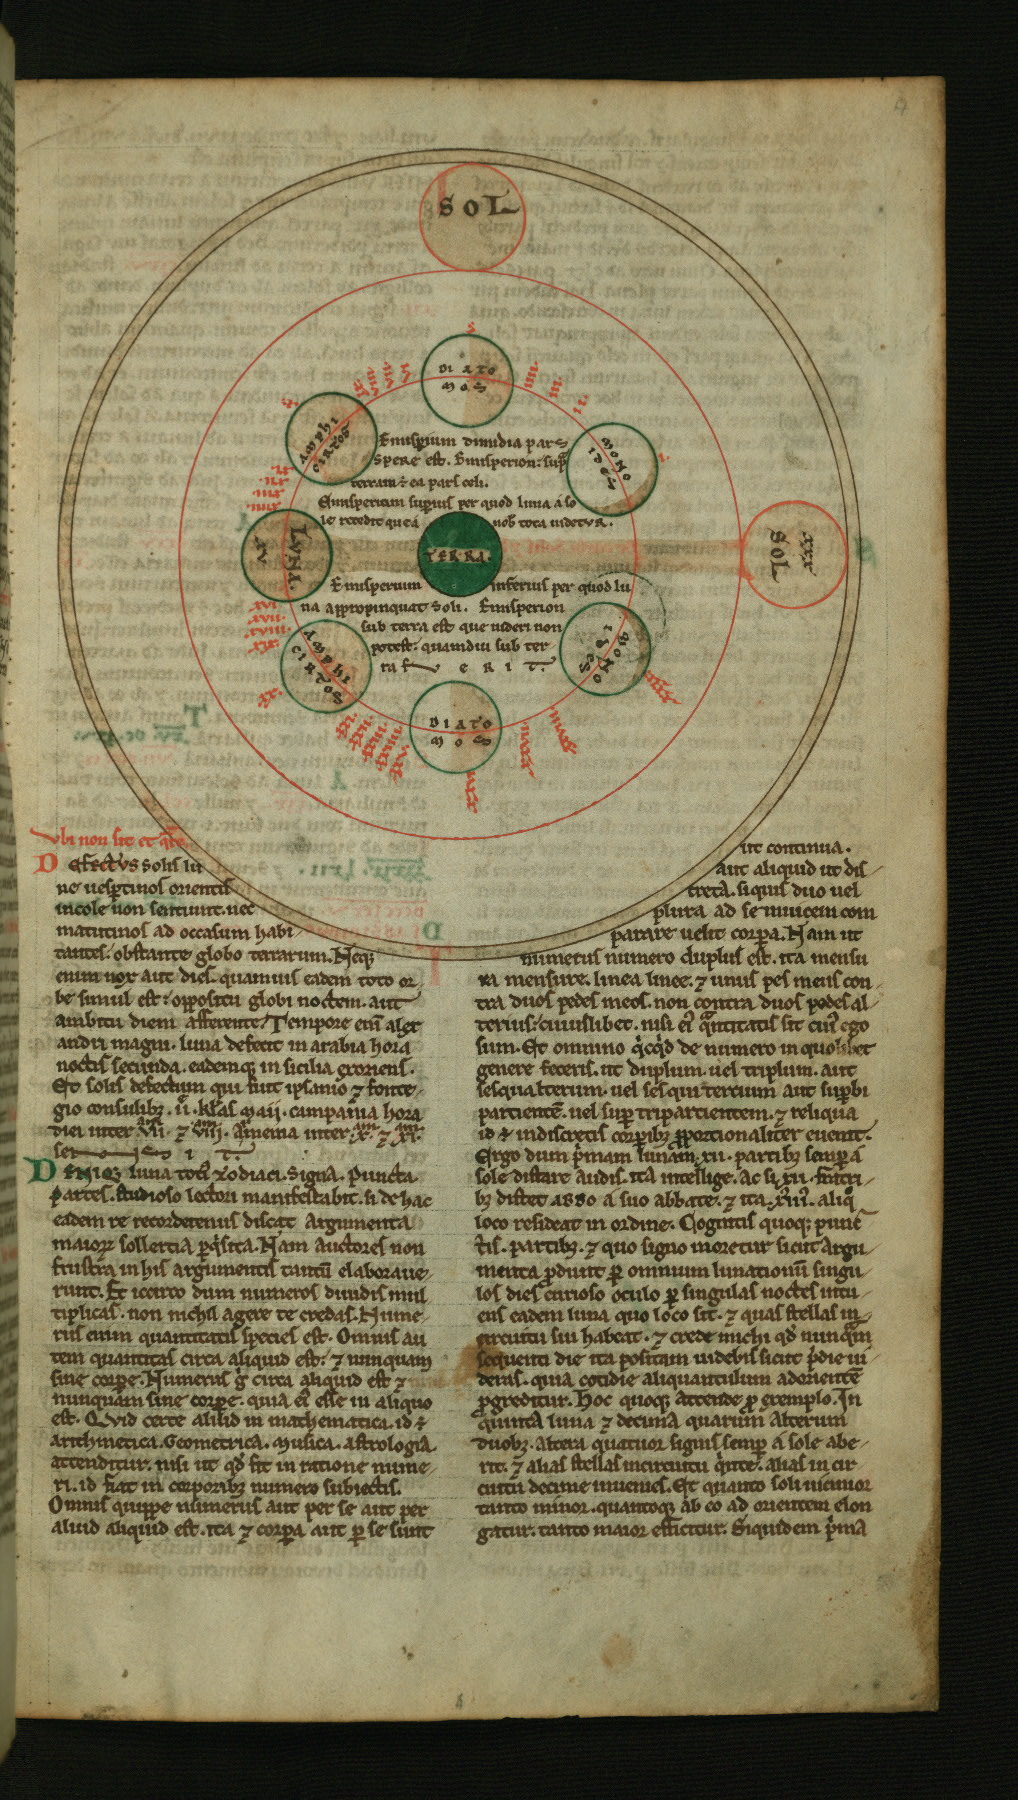 SOL
DIATO
MOS
AMPHI
CIRTOS
MONO
IDES
Emisperium dimidia pars
spere est. Emisperion: suꝑ
terram & ea pars celi.
Emisperium suꝑius per quod luna a so
le recedit que a nob tota uidetur.
LVNA.
XV
TERRA.
XXX
SOL
Emisperium inferius per quod lu
na appropinquat soli. Emisperion
sub terra est que uideri non
potest: quamdiu sub ter
ra f v e r i t.
XVI
XVII.
XVIII.
XIX.
XX.
AMPHI
CIRTOS
MONO
IDES
DIATO
MOS
Vbi non sit et q̄re
Defectvs solis lu
ne uesꝑtinos orientis
incole non sentiunt. nec
matutinos ad occasum habi
tantes. obstante globo terrarum. Neq;
enim nox aut dies. quamuis eadem toto or
be simul est: oppositu globi noctem. aut
ambitu diem afferente. Tempore eni alex
andri magni. luna defecit in arabia hora
noctis secunda. eademq; in sicilia exoriens.
Et solis defectum qui fuit ipsanio ⁊ fonte
gio consulibz. ii. klas maii. campania hora
diei inter vii. ⁊ viii. armenia inter x. ⁊ xi.
sen s i t.
Deniq; luna totꝰ zodiaci signa. puncta
partes. studioso lectori manifestabit. si de hac
eadem re recordetenus discat argumenta
maiorꝝ sollertia ꝑq̄sita. Nam auctores non
frustra in his argumentis tantū elaboraue
runt. Et iccirco dum numeros diuidis mul
tiplicas. non nichil agere te credas. Nume
rus enim quantitatis species est. Omnis au
tem quantitas circa aliquid est: ⁊ nunquam
sine corꝑe. Numerus g̊ circa aliquid est ⁊
nunquam sine corꝑe. quia ei esse in aliquo
est. Quid certe aliud in mathematica. id ÷
arithmetica. Geometrica. musica. astrologia
attenditur. nisi ut qd fit in ratione nume
ri. id fiat in corporibz numero subiectis.
Omnis quippe numerus aut per se aut per
aliud aliquid est. ita ⁊ corꝑa aut ꝑ se sunt
ut continua.
aut aliquid ut dis
creta. siquis duo uel
plura ad se inuicem com
parare uelit corꝑa. Nam ut
numerus numero duplus est. ita mensu
ra mensure. linea linee. ⁊ unus pes meus con
tra duos pedes meos. non contra duos pedes al
terius: cuiuslibet. nisi ei q̄ntitatis sit cuiꝰ ego
sum. Et omnino q̇cq̇d de numero in quolibet
genere feceris. ut duplum. uel triplum. aut
sesqualterum. uel sesquitertium aut suꝑbi
partientē. uel suꝑ tripartientem. ⁊ reliqua
id ÷ indiscretis corꝑibz ꝓportionaliter euenit.
Ergo dum p̄mam lunam. xii. partibz semꝑ a
sole distare audis. ita intellige. Ac si. xii. fratri
bz distet a suo abbate. ⁊ ita. xiiii. aliq̊
loco resideat in ordine. Cognitis quoq; punc
tis. partibz. ⁊ quo signo moretur sicut argu
menta ꝓdunt ꝑ omnium lunationū singu
los dies curioso oculo ꝑ singulas noctes intu
ens eadem luna quo loco sit. ⁊ quas stellas in
circuitu sui habeat. ⁊ crede michi qd nunq̄m
sequenti die ita positam uidebis sicut p̄die ui
deras. quia cotidie aliquantulum ad orientē
ꝓgreditur. Hoc quoq; attende ꝓ exemplo. In
quinta luna ⁊ decima quarum alterum
duobz. altera quatuor signis semꝑ a sole abe
rit. ⁊ alias stellas incircuitu q̇nte. alias in cir
cuitu decime inuenies. Et quanto soli uicinior
tanto minor. quantoq; ab eo ad orientem elon
gatur. tanto maior efficitur. Siquidem p̄ma